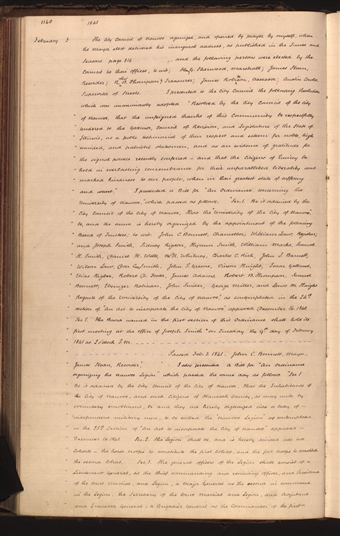 1160 1841
February 3 The City Council of Nauvoo organized, and opened by prayer by myself, when
the mayor elect delivered his inaugural address, as published in the Times and
Seasons page 316 and the following persons were elected by the
Council as their officers, to wit;
Recorder; Robt B. Thompson, Treasurer; James Robison, Assessor; Austin Cowles
Supervisor of Streets. I presented to the City Council the following Resolution
which was unanimously adopted "Resolved by the City Council of the city
of Nauvoo, that the unfeigned thanks of this Community be respectfully
tendered to the Governor, Council of Revision, and Legislature of the State of
Illinois, as a public testimonial of their respect and esteem for noble, high
minded, and patriotic statesmen, and as an evidence of gratitude for
the signal powers recently conferred – and that the Citizens of Quincy be
held in everlasting remembrance for their unparalleled liberality and
marked kindness to our people, when in their greatest state of suffering
and want." I presented a Bill for "An Ordinance concerning the
University of Nauvoo" which passed as follows. "Sec. 1. Be it ordained by the
City Council of the City of Nauvoo, That the "University of the City of Nauvoo"
be, and the same is hereby organized by the appointment of the following
Board of Trustees, to wit. John C. Bennett, Chancellor; William Law, Registrar;
and Joseph Smith, Sidney Rigdon, Hyrum Smith, William Marks, Samuel
H. Smith, Daniel H. Wells, N. K. Whitney, Charles C. Rich, John T. Barnett,
Wilson Law, Don C. Smith, John P. Greene, Vinson Knight, Isaac Galland,
Elias Higbee, Robert D. Foster, James Adams, Robert B. Thompson, Samuel
Bennett, Ebenezer Robinson, John Snider, George Miller, and Lenos M. Knight
Regents of the "University of the City of Nauvoo", as contemplated in the 24th
section of "An act to incorporate the City of Nauvoo" approved December 16. 1840
Sec 2. The Board named in the first section of this Ordinance shall hold its
first meeting at the office of Joseph Smith on Tuesday, the 9th day of February
1841 at
Passed Feb 3. 1841. John C. Bennett, Mayor.
James Sloan, Recorder." I also presented a Bill for "An Ordinance
organizing the Nauvoo Legion" which passed the same day as follows "Sec 1.
Be it ordained by the City Council of the City of Nauvoo, That the Inhabitants of
the City of Nauvoo, and such Citizens of Hancock County, as may unite by
voluntary enrollment, be, and they are hereby organized into a body of
independent military men, to be called the "Nauvoo Legion" as contemplated
in the 25th Section of "An act to incorporate the City of Nauvoo" approved
December 16. 1840. Sec 2. The Legion shall be, and is hereby divided into two
Cohorts – the horse troops to constitute the first Cohort, and the foot troops to constitute
the second Cohort. Sec 3. The general officers of the Legion shall consist of a
Lieutenant General, as the chief commanding and reviewing officer, and President
of the court Martial, and Legion; a Major General as the second in command
in the Legion, the Secretary of the Court Martial and Legion, and Adjutant
and Inspector General; a Brigadier General as the Commander of the first